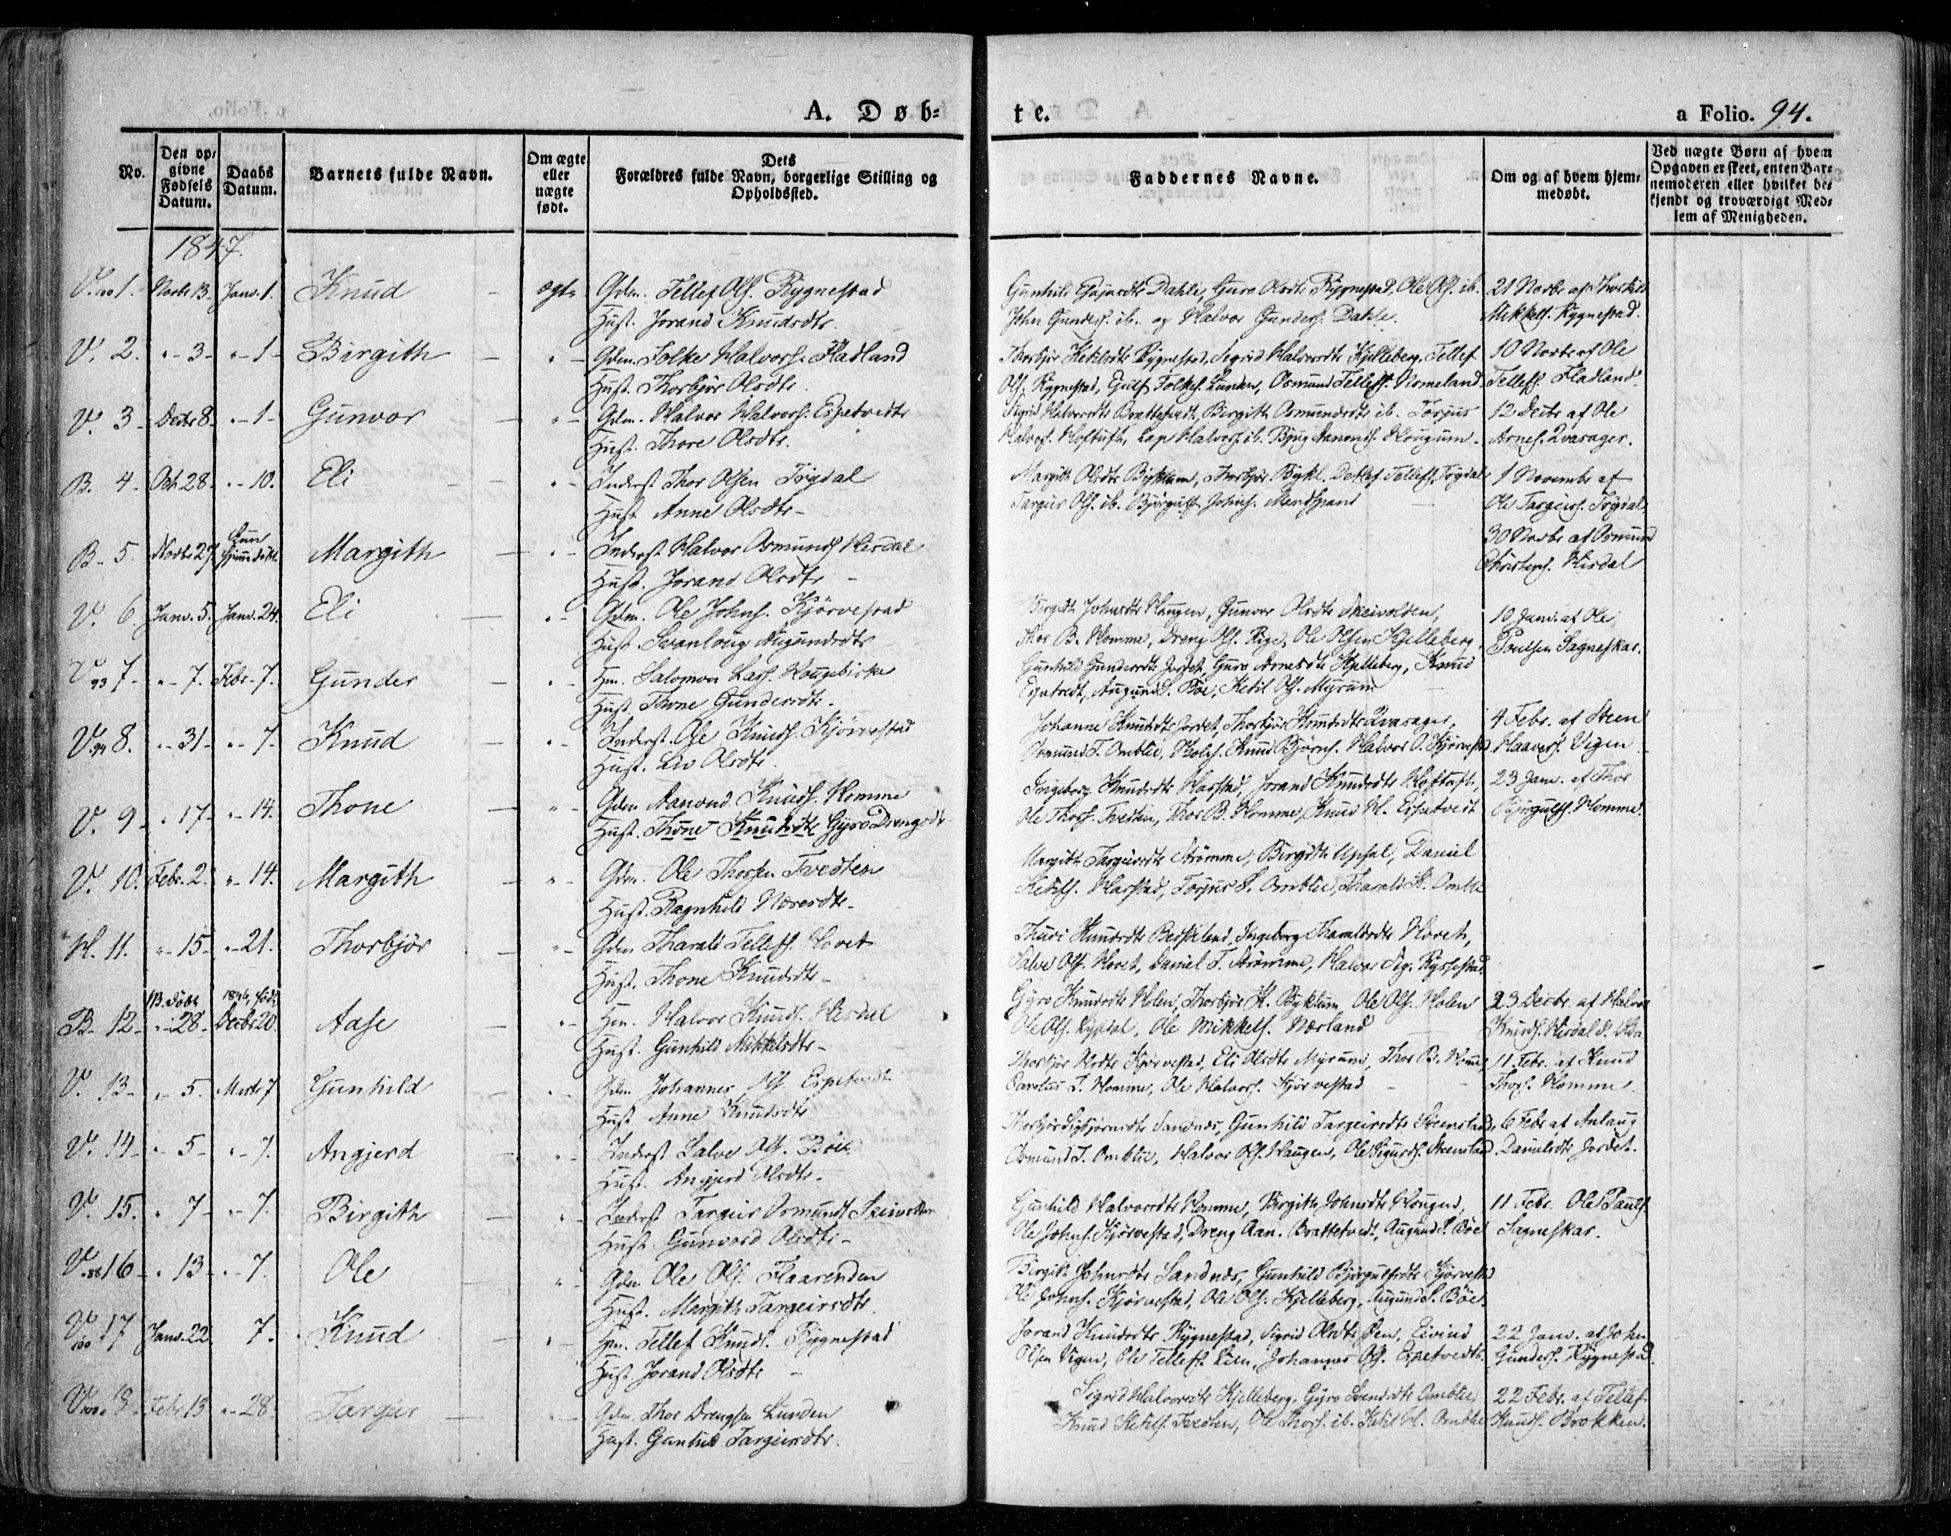 A. Døb=
te.
a Folio. 94.
No.
Den op-
givne
Fødsels
Datum.
Daabs
Datum.
Barnets fulde Navn.
Om ægte
eller
uægte
født.
Dets
Forældres fulde Navn, borgerlige Stilling og
Opholdssted.
Faddernes Navne.
Om og af hvem hjem-
medøbt.
Ved uægte Børn af hvem
Opgaven er skeet, enten Bar-
nemoderen eller hvilket be-
kjendt og troværdigt Med-
lem af Menigheden.
1847.
V. 1. Novbr 13. Janv. 1. Knud ægte Gdm. Tellef Ols. Rygnestad
Hust. Jorand Knudsdtr.
Dahle, Guro Olsdtr Rygnestad, Ole Ols. ib.
John Gunders. ib. og Halvor Gunders. Dahle.
21 Novbr af
Mikkels. Rygnestad.
V. 2. " 3 " 1 Birgith " Gdm. Folke Halvors. Fladland
Hust. Thorbjør Olsdtr.
Thorbjør Ketilsdtr Rygnestad, Sigrid Halvorsdtr Kjelleberg, Tellef
Ols. Rygnestad, Folkes. Lunden, Osmund Tellefs. Nomeland
10 Novbr af Ole
Tellefs. Fladland.
V. 3 Decbr 8 " 1 Gunvor " Gdm. Halvor Halvors. Espetvedt
Hust. Thore Olsdtr.
Sigrid Halvorsdtr Brattetvedt, Birgith Osmundsdtr ib. Torjus
Halvors. Hoftuft, Halvors. ib. Bjug Aanonds. Hougum.
12 Decbr af Ole
Arnes. Qvasager.
B. 4 Octb. 28. " 10. Eli " Inderst Thor Olsen Trydal
Hust. Anne Olsdtr
Margith Olsdtr Byklum, Thorbjør Bykl. Detlef Tellefs. Trydal
Targus Ols. ib. Bjørgulf Johns.
1 Novembr af
Ole Targeirs. Trydal
B. 5. Novbr 27 Margith " Inderst Halvor Osmunds. Hisdal
Hust. Jorand Olsdtr
30 Novbr af Osmund
Hisdal
V. 6 Janv. 5. Janv. 24. Eli " Gdm. Ole Johns. Kjørvestad
Hust. Svanlaug Augundsdtr
Birgith Johnsdtr Haugen, Gunvor Olsdtr Skeivolden,
Thor B. Homme, Dreng Ols. Rige, Ole Olsen Kjelleberg.
10 Janv. af Ole
Poulsen Sagneskar.
V. 93 7. " 7. Febr. 7. Gunder " Hm. Salomon Lars. Hougebirke
Hust. Thone Gundersdtr.
Gunhild Gundersdtr Jordet, Guro Arnesdtr Kjelleberg, Knud
Espetvedt, Augund S. Bøe, Ketil Ols. Myrum
V. 94 8. " 31 " 7. Knud " Inderst. Ole Knuds. Kjørvestad
Hust. Liv Olsdtr.
Johanne Knudsdtr Jordet, Thorbjør Knudsdtr Qvasager,
Osmund T. Omblie, Knud Bjørns. Halvor O. Kjørvestad
4 Febr. af Steen
Haavors. Vigen
V. 9 " 17 " 14. Thone " Gdm Aanund Knuds. Homme
Hust. Thone Knudsdtr Gyro Drengsdtr
Ingeborg Knudsdtr Harstad, Jorand Knudsdtr Hoftuft,
Ole Thors. Tvedten, Thor B. Homme, Knud H. Espetvedt
23 Janv. af Thor
Bjørgulfs. Homme.
V. 10. Febr. 2. " 14. Margith " Gdm. Ole Thorsen Tvedten
Hust. Ragnhild
Margith Targeirsdtr Strømme, Birgith Upsal, Daniel
Ketils. Harstad, Torjus S. Omblie, Tharald K. Omblie
H. 11. " 15 " 21. Thorbjør " Gdm Tharald Tellefs. Hovet
Hust. Thone Knudsdtr
Thuri Knudsdtr Besteland, Ingeborg Tharaldsdtr Hovet,
Salve Ols. Hovet, Daniel T. Strømme, Halvor Sig. Rysstad
B. 12 B. døbt " 28 1846, født Decbr 20 Aase " Hm. Halvor Knuds. Hisdal
Hust. Gunhild Mikkelsdtr
Gyro Knudsdtr Holen, Thorbjør K. Byklum, Ole Ols. Holen
Ole Ols. Lysdal, Ole Mikkels. Nærland
23 Decbr. af Halvor
Knuds. Hisdal
V. 13 " 5. Marts 7 Gunhild " Gdm Johannes Ols. Espetvedt
Hust. Anne Knudsdtr
Thorbjør Olsdtr Kjørvestad, Eli Olsdtr Myrum, Thor B. Homme
T. Homme, Ole Halvors. Kjørvestad
11 Febr. af Knud
Thors. Homme.
V. 14 " 5 " 7. Angjerd " Inderst Salve Ols. Bøe
Hust. Angjerd Olsdtr.
Sigbjørnsdtr Sandnes, Gunhild Targeirsdtr Steenstad,
Osmund T. Omblie, Halvor Ols. Haugen, Ole Sigurds. Steenstad
6 Febr af Anlaug
Danielsdtr Jordet.
V. 15. " 7 " 7. Birgith " Inderst Targeir Osmunds.
Hust. Gunvord Olsdtr
Gunhild Halvorsdtr Homme, Birgith Johnsdtr Hougen,
Ole Johns. Kjørvestad, Dreng Aan. Brattetvedt, Augund S. Bøe
11 Febr. Ole Pauls.
Sagneskar.
V. 16 " 13 " 7. Ole " Gdm Ole Ols. Flaarenden
Hust. Margith Targeirsdtr.
Birgith Johnsdtr Sandnes, Gunhild Bjørgulfsdtr Kjørvestad
Ole Johns. Kjørvestad, Ole Ols. Kjelleberg, Augund S. Bøe.
V. 100 17 Janv. 22 7. Knud " Hm. Tellef Knuds. Rygnestad
Hust Jorand Olsdtr
Jorand Knudsdtr Rygnestad, Sigrid Olsdtr Øen, Eivind
Olsen Vigen, Ole Tellefs. Lien, Johannes Ols. Espetvedt.
22 Janv. af John
Gunders. Rygnestad.
V. 18. Febr. 13 " 28. Targeir " Gdm. Thor Drengsen Lunden
Hust. Gunhild Targeirsdtr.
Sigrid Halvorsdtr Kjelleberg, Gyro Svensdtr Omblie,
Knud Ketils. Tvedten, Ole Thors. ib. Ketil Omblie
22 Febr. af Tellef
Knuds. Brokken.